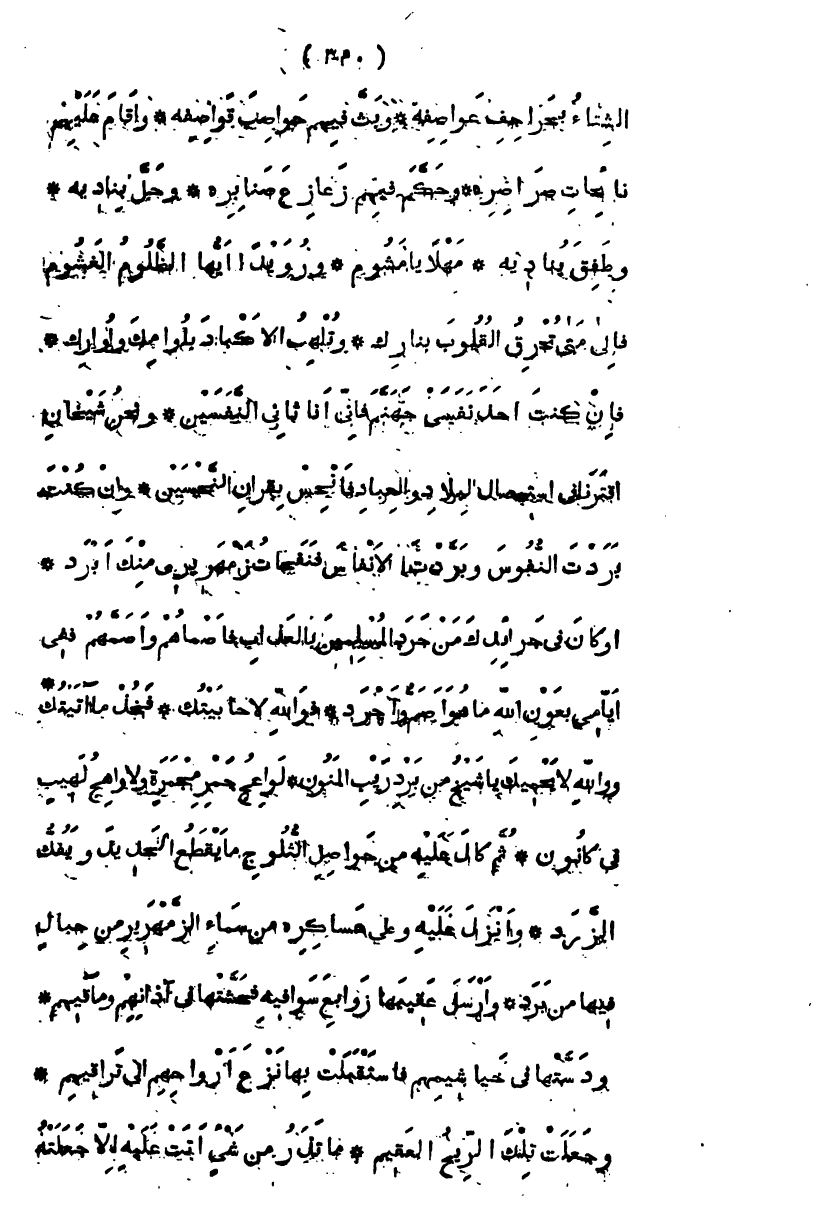 الشِتاءُ بحَراجِفِ عَواصِفِه * وَبَثَّ فيهم حَواصِبَ قَواصِفِه * واَقامَ عَلَيْهِم
نائِحاتِ صَراصِرِه * وحَكَّمَ فيهِم زَعازِعَ صَنابِرِه * وحَلَّ بِنادِيه *
وطَفِقَ يُنادِيه * مَهْلًا يا مَشُوم * ورُوَيْدًا اَيُّها الظَّلُومُ الغَشُوم
فاِلىٰ مَتىٰ تُحْرِقُ القُلوبَ بنارِك * وتُلْهِبُ الاَكْبادَ بأُوامِكَ وأُوارِك *
فاِنْ كنتَ اَحدَ نَفَسَيْ جَهَنَّمَ فانِّي اَنا ثاني النَّفَسَيْن * ونحنُ شَيْخانِ
اقتَرَنّا في استيصال البِلادِ والعِبادِ فاَنْحِسْ بقِرانِ النَّحْسَيْن * واِنْ كُنْتَ
بَرَّدْتَ النُّفوسَ وبَرَّدْتَ الاَنْفاسَ فنَفَحاتُ زَمْهَرِيرِي مِنْكَ اَبْرَد *
او كانَ في حَرائِرِكَ مَنْ جَرَّدَ المُسْلِمينَ بالعَذابِ فاَصْماهُمْ واَصَمَّهُمْ ففي
اَيّامي بعَوْنِ اللّه ما هُوَ اَصَمُّ واَجْرَد * فوَاللّهِ لا حابَيْتُك * فَخُذْ ما آتَيْتُك *
وواللّهِ لا يَحْمِيكَ يا شَيْخُ من بَرْدِ رَيْبِ المَنُون * لَواعِجُ جَمْرِ مِجْمَرَةٍ ولا واهِجُ لَهِيبٍ
في كانُون * ثُمَّ كالَ عَلَيْهِ من حَواصِلِ الثُلوجِ ما يَقْطَعُ الحَدِيدَ ويَفُكُّ
الزَّرَد * واَنْزَلَ عَلَيْهِ وعلي عَساكِرِه من سَماءِ الزَّمْهَرِيرِ من جِبالٍ
فيها من بَرَد * واَرْسَلَ عَقِيبَها زَوابِعَ سَوافِيهِ فحَشَتْها في آذانِهِمْ ومآقِيهِم *
ودَسَّتْها في خَياشِيمِهِم فاستَقْبَلَتْ بِها نَزْعَ اَرْواحِهِم الي تَراقِيهِم *
وجَعَلَتْ تِلْكَ الرِّيحُ العَقِيم * ما تَذَرُ من شَيْءٍ اَتَتْ عَلَيْهِ اِلّا جَعَلَتْهُ